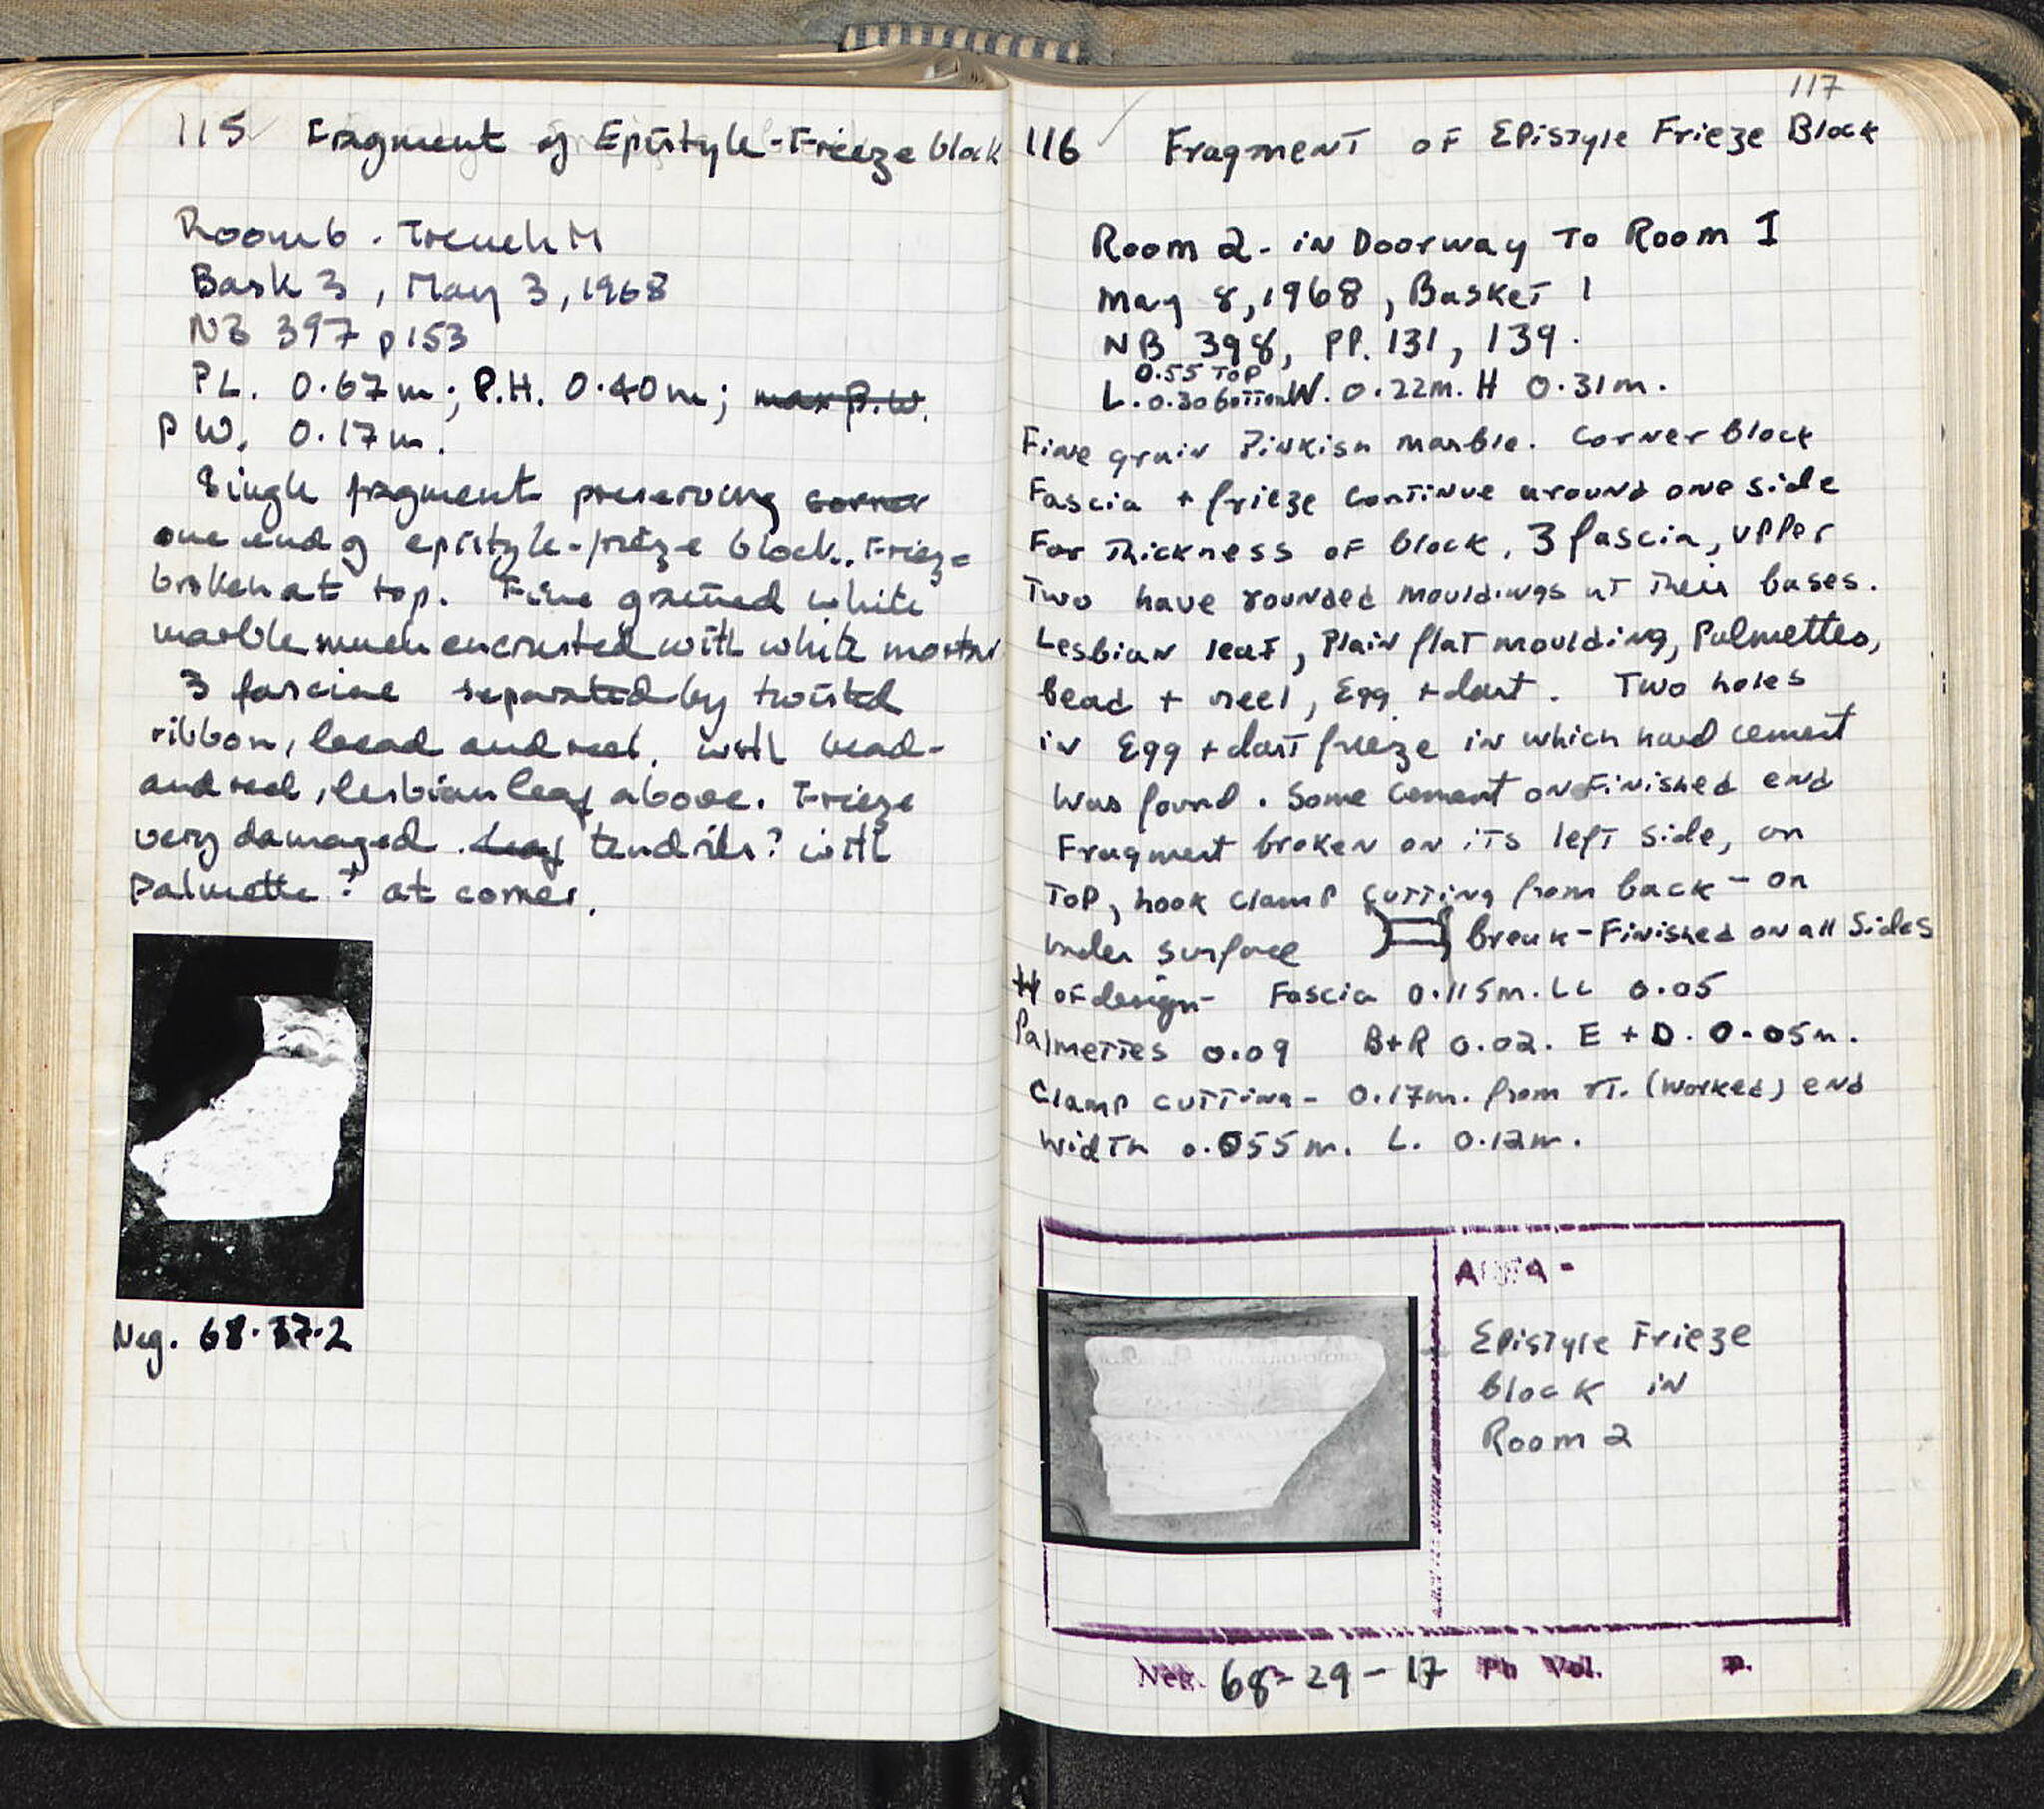 115 Fragment of Epistyle-Frieze block
Room 6 . Trench M
Bask 3 , May 3, 1968
NB 397 p 153
PL. 0.67m; P.H. 0.40m; max P.W.
PW. 0.17m.
Single fragment preserving corner
one end of epistyle-frieze block. Frieze
broken at top. Fine grained white
marble much encrusted with white mortar
3 fasciae separated by twisted
ribbon, bead and reel, with bead-
and reel, lesbian leaf above. Frieze
very damaged. Leaf tendrils? with
Palmette? at corner.
Neg. 68-37-2
117
116 Fragment of Epistyle Frieze Block
Room 2 - in Doorway to Room I
May 8, 1968, Basket 1
NB 398, PP. 131, 139.
0.55 Top
L. 0.30 bottom W. 0.22m. H 0.31m.
Fine grain Pinkish marble. Corner block
Fascia + frieze continue around one side
For Thickness of block. 3 fascia, upper
Two have rounded mouldings at their bases.
Lesbian leaf, Plain flat moulding, Palmettes,
bead + reel, Egg + dart. Two holes
in Egg + dart frieze in which hard cement
was found. Some cement on Finished end
Fragment broken on its left side, on
Top, hook clamp cutting from back - on
under surface break - Finished on all Sides
H of design - Fascia 0.115m. LL 0.05
Palmettes 0.09 B+R 0.02. E + D. 0.05m.
Clamp cutting - 0.17m. from rt. (worked) end
Width 0.055m. L. 0.12m.
Epistyle Frieze
block in
Room 2
Neg. 68-29-17 Ph Vol. p.